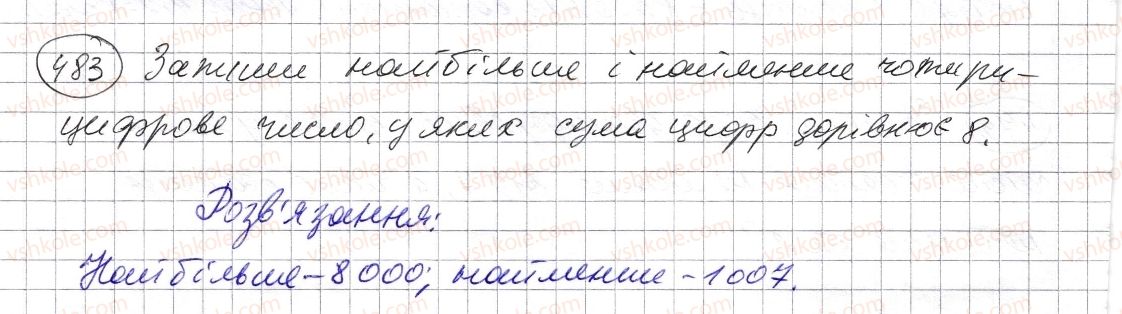 483 Запиши найбільше і найменше чотири-
цифрове число, у яких сума цифр дорівнює 8.
Розв'язання:
Найбільше – 8 000; найменше – 1 007.